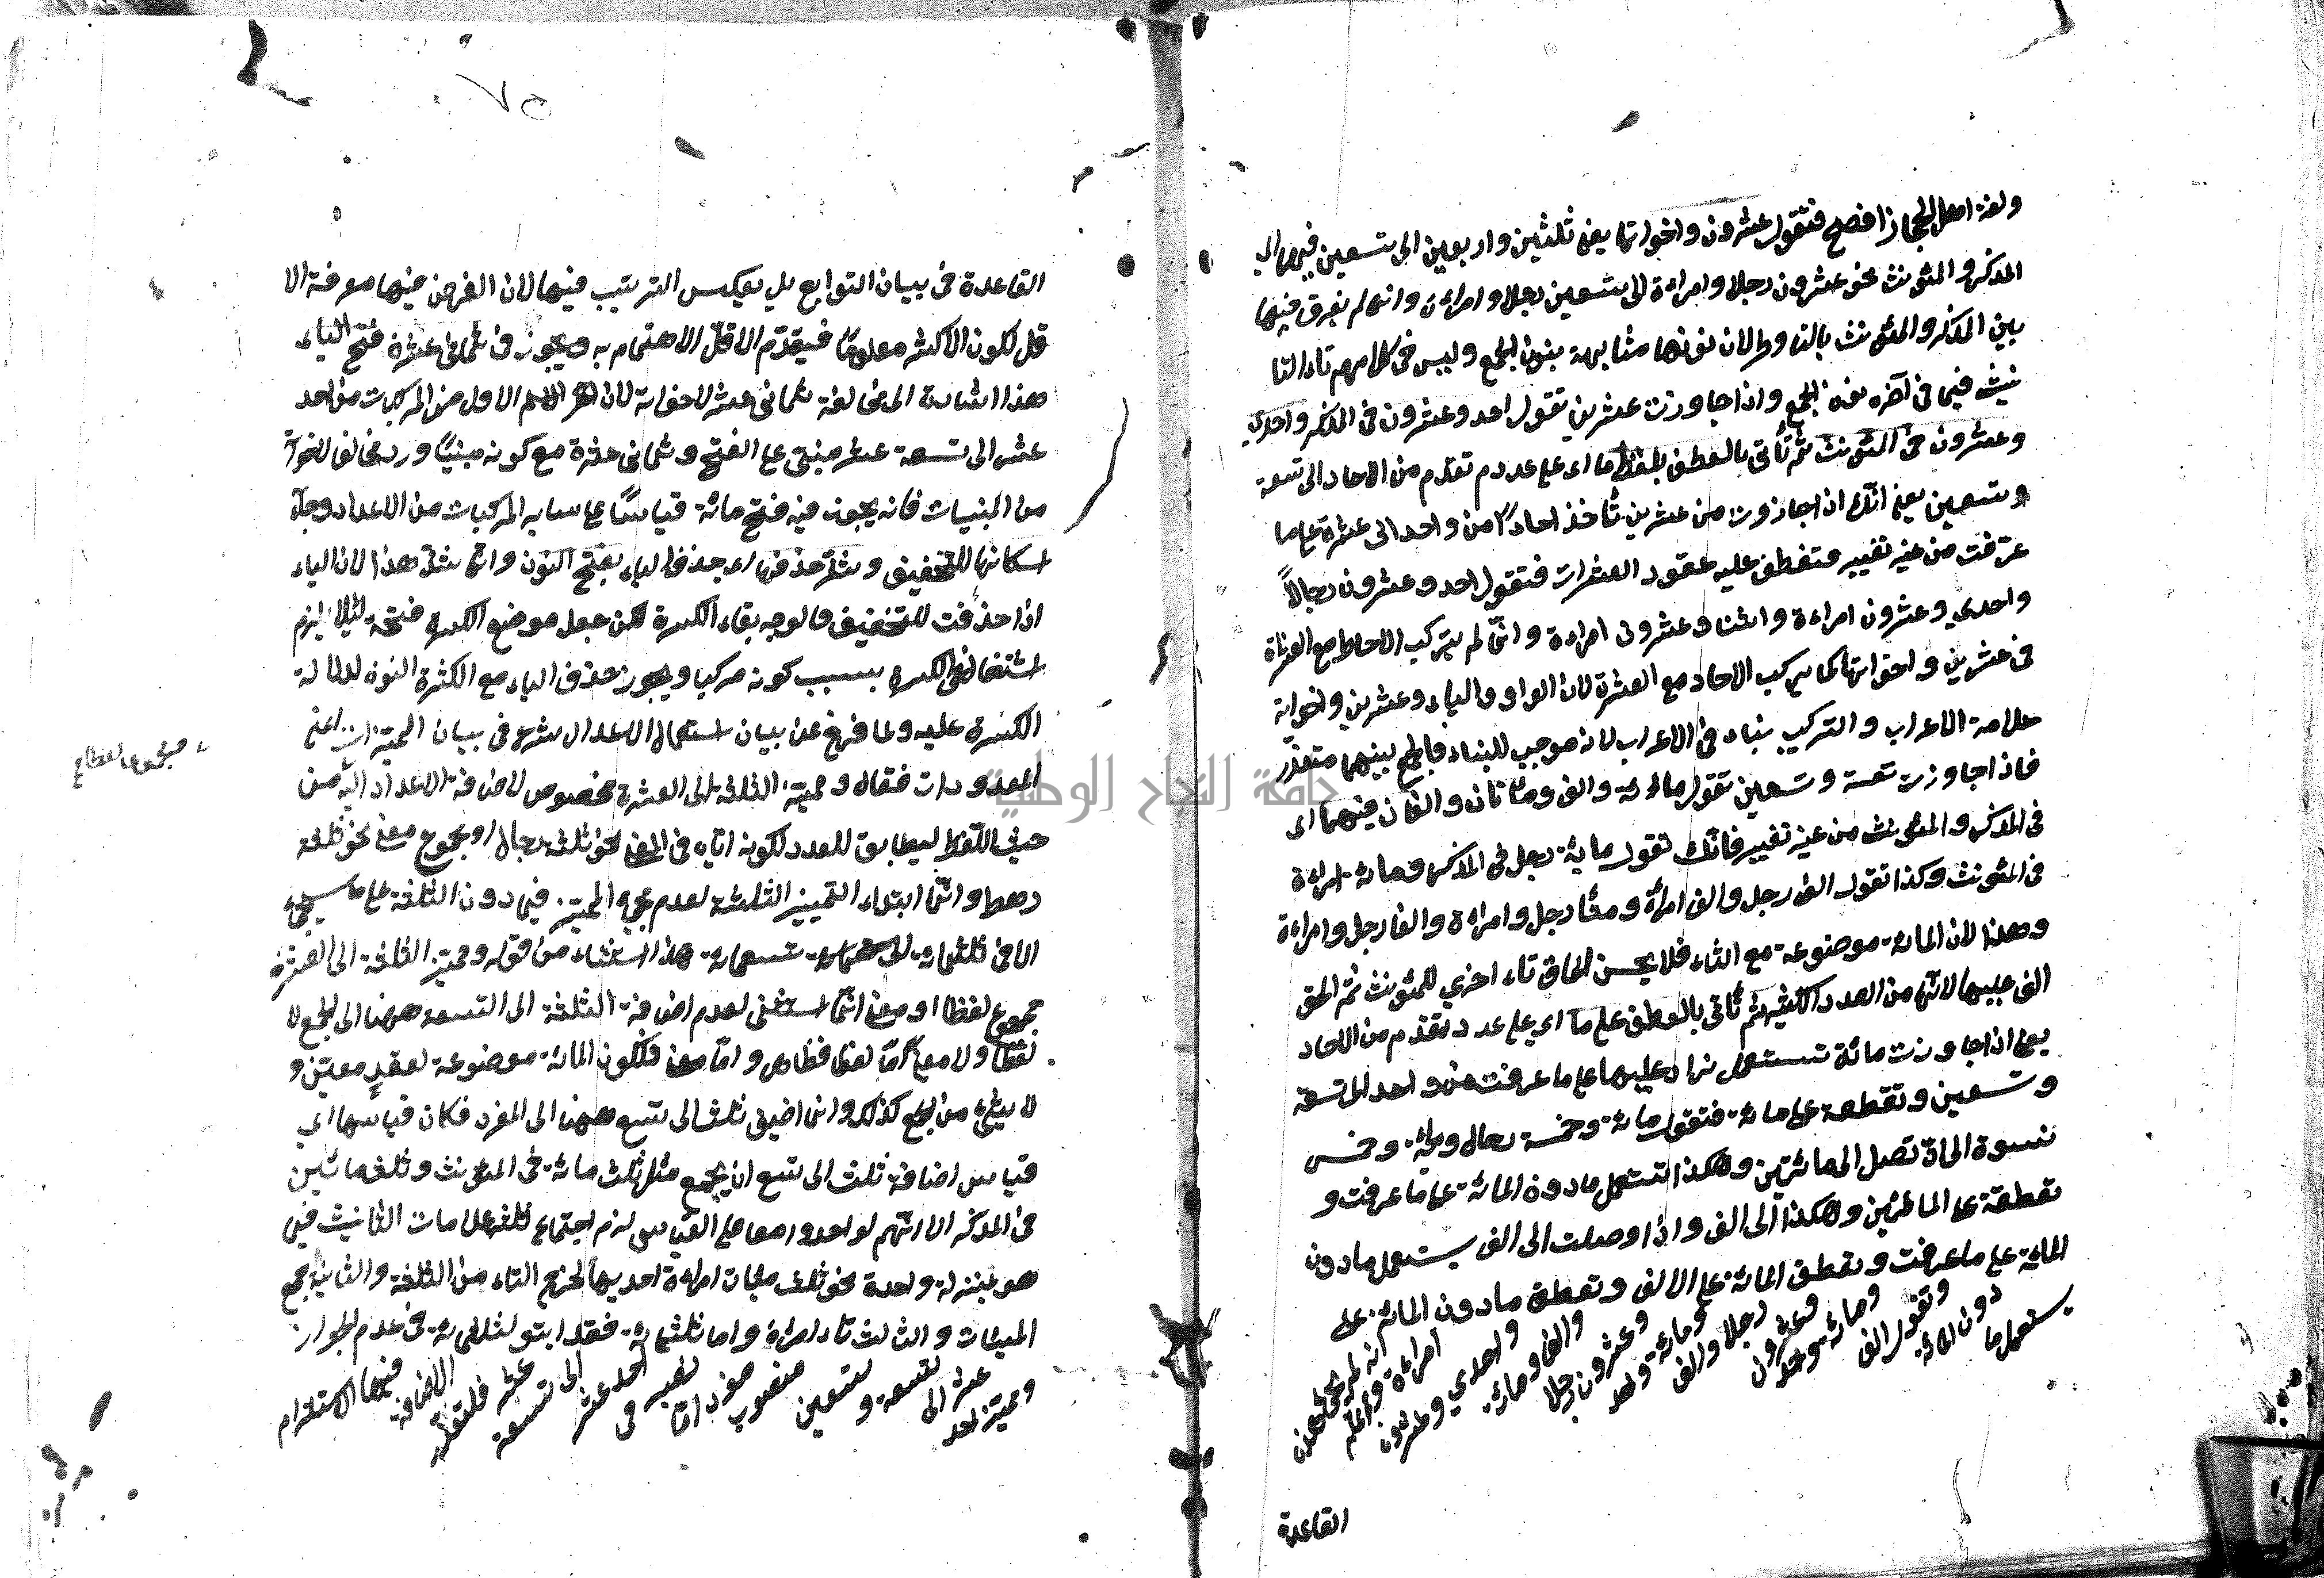 ولغة اهل الحجاز افصح فتقول عشرون واخواتها يعني ثلثين واربعين الى تسعين فيهما اي
المذكر والمئونث نحو عشرون رجلا وامراءة الى تسعين رجلا وامراءة وانما لم يفرق فيها
بين المذكر والمئونث بالتاء وطر لان نونها مشابهة بنون الجمع وليس في كلامهم تاء التا
نيث فيما في آخره نون الجمع واذا جاوزت عشرين تقول احد وعشرون في المذكر واحدي
وعشرون في المئونث ثم تأتي بالعطف بلفظ ما اي على عدد م تقدم من الاحاد الى تسعة
وتسعين يعني انك اذا جاوزت من عشرين تأخذ احادا من واحد الى عشرة على ما
عرفت من غير تغيير فتعطف عليه عقود العشرات فتقول احد وعشرون رجالاً
واحدي وعشرون امراءة واثنا وعشرون امراءة وانّما لم يتركب الاحاد مع العشرات
في عشرين واخواتها كما يتركب الاحاد مع العشرة لان الواو والياء وعشرين واخواته
علامة الاعراب والتركيب ينافي الاعراب لانه موجب للبناء فالجمع بينهما متعذّر
فاذا جاوزت تسعة وتسعين تقول مائة والف ومائتان والفان فيهما اي
في المذكر والمئونث من غير تغيير فانّك تقول مائة رجل في المذكر ومائة امراءة
في المئونث وكذا تقول الف رجل والف امرأة ومئتا رجل وامراءة والفا رجل وامراءة
وهذا لان المائة موضوعة مع التاء فلا يحسن الحاق تاء اخري للمئونث ثم الحق
الف عليها لانّها من العدد الكثير ثم تأتي بالعطف على ما اي على عدد تقدم من الاحاد
يعني اذا جاوزت مائة تستعمل زاد عليها على ما عرفت من واحد الى تسعة
وتسعين وتعطفه على مائة فتقول مائة وخمسة رجال ومائة وخمس
نسوة الى ان تصل الى مائتين وهكذا تستعمل ما دون المائة على ما عرفت و
تعطفه على المائتين وهكذا الى الف واذا وصلت الى الف يستعمل مادون
المائة على ما عرفت وتعطف المائة على الالف وتعطف مادون المائة على
يستعمل ما دون المائة وتقول الف ومائة وواحد وعشرون رجلا والف ومائة واحد وعشرون رجلا والف ومائة واحدي وعشرون امراءة واعلم انه
القاعدة
٧٥
القاعدة في بيان التوابع بل يعكس الترتيب فيها لان الغرض فيها معرفة الا
قل لكون الاكثر معلومًا فيقدّم الاقل الاهتمام به ويجوز في ثماني عشرة فتح الياء
هذا اشارة الى مخالفة ثماني عشر لاخواته لان آخر الاسم الاول من المركبات من احد
عشر الى تسعة عشر مبني على الفتح وثماني عشرة مع كونه مبنيًا ورد مخالفا لاخواته
من المبنيات فانه يجوز فيه فتح يائه قياسًا على ساير المركبات من الاعداد وجاء
اسكانها للتخفيف وشذ حذفها اي حذف الياء بفتح النون وانما شذ هذا لان الياء
اذا حذفت للتخفيف فالوجه بقاء الكسرة لكن جعل موضع الكسرة فتحة لئلا يلزم
استثقال الكسرة بسبب كونه مركبا ويجوز حذف الياء مع الكسرة النون لدلالة
الكسرة عليه ولما فرغ عن بيان استعمال الاعداد شرع في بيان المميّزات اعني
المعدودات فقال ومميّز الثلثة الى العشرة مخصوص لاضافة الاعداد اليه من
حيث اللّفظ ليطابق للعدد لكونه اياه في المعنى نحو ثلثة رجال او مجموع معنى نحو ثلثة
رهط وانّما ابتداء التمييز الثلثة لعدم مجيء المميّز فيما دون الثلثة على ما سيجيء
الا في ثلثمائة الى تسعمائة هذا استثناء من قوله ومميّز الثلثة الى العشرة
مجموع لفظا او معنى انّما استثنى لعدم اضافة الثلثة الى التسعة ههنا الى الجمع لا
لفظا ولا معنى امّا لفظا فظاهر وامّا معنى فلكون المائة موضوعة لعقدٍ معيّن و
لا شيئ من الجمع كذلك وانما اضيف ثلث الى تسع ههنا الى المفرد فكان قياسها اي
قياس اضافة ثلث الى تسع ان يجمع مثل ثلث مائة في المئونث وثلث مائين
في المذكر الا انّهم لو اوردوا معا على القياس لزم اجتماع ثلث علامات التأنيث فيما
هو بمنزلة واحدة نحو ثلث مئات امراءة احديها التاء من الثلثة والثانية جمع
المئات والثالث تاء امراءة واما ثلثمائة فقد في عدم الجواز
ومميّز احد عشر الى تسعة وتسعين منصوب مفرد امّا نصبه في احد عشر الى تسعة عشر فلتعذّر الاضافة فيها الاستلزام
مجموع لفظا صح
جامعة النجاح الوطنية